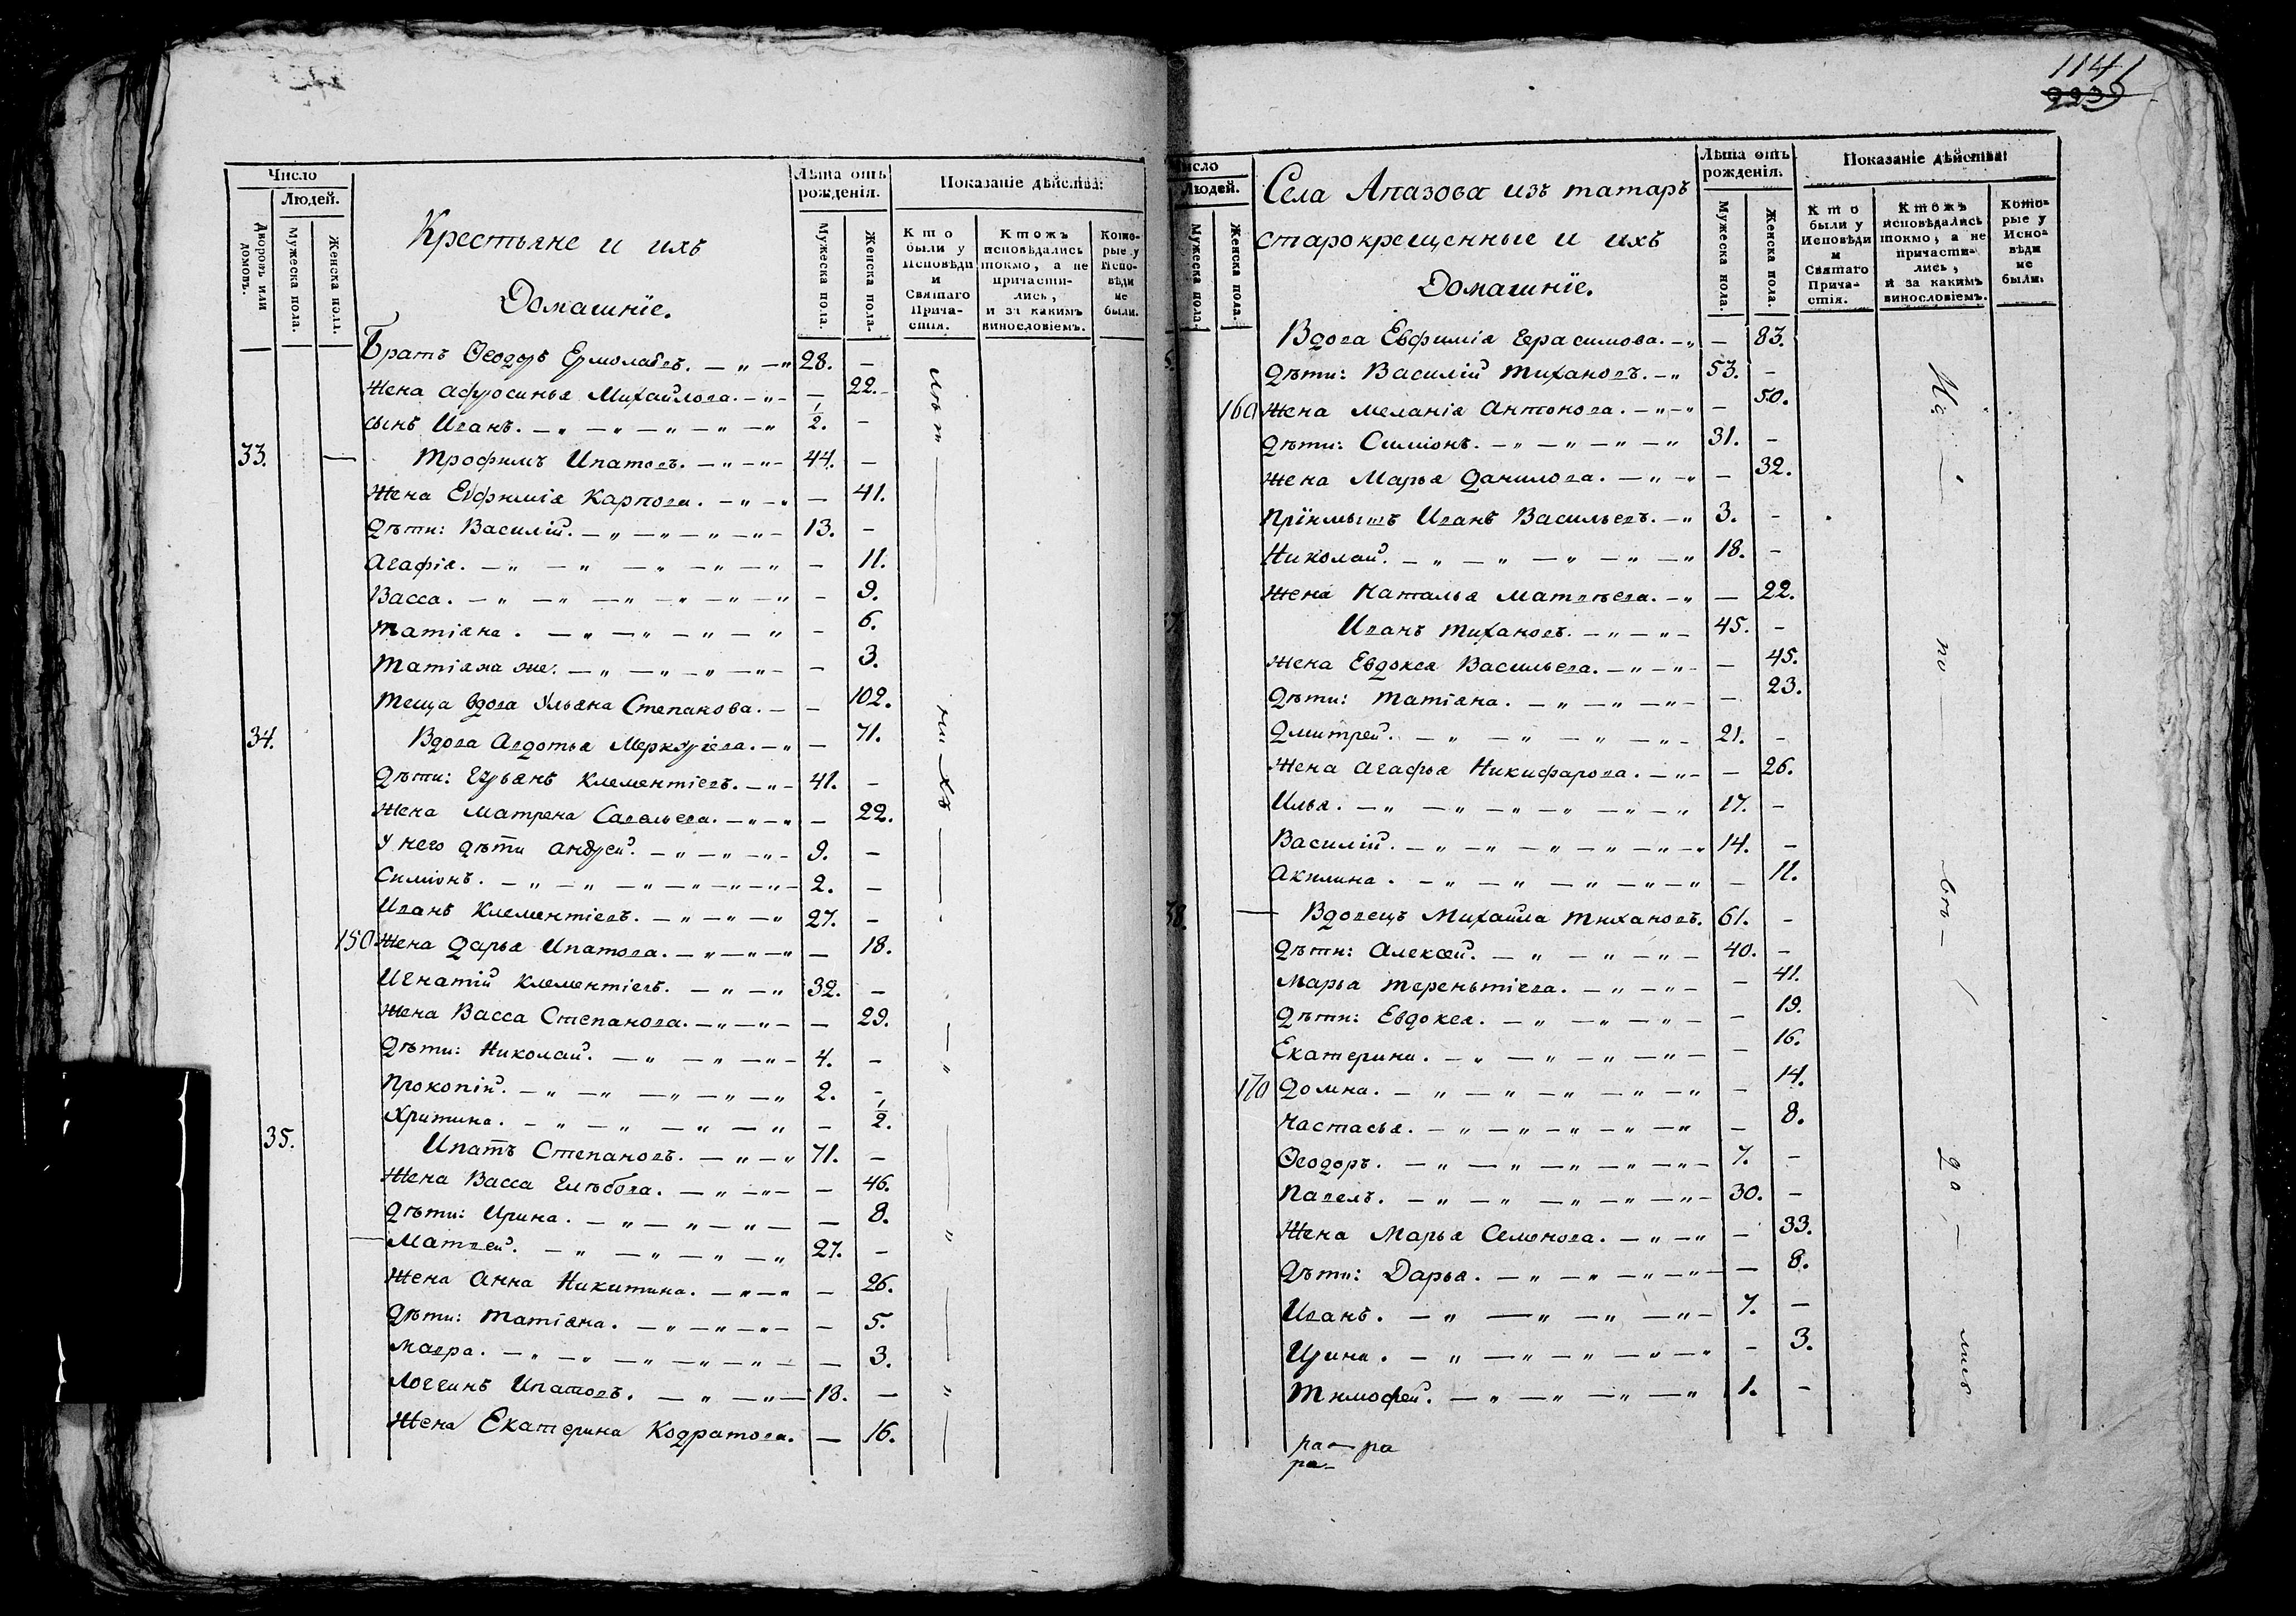 Число
Людей.
Дворовъ или домовъ.
Мужеска пола.
Женска пола.
Крестьяне и ихъ
Домашніе.
Лѣта отъ рожденія.
Мужеска пола.
Женска пола.
Показаніе дѣйства:
Кто были у Исповѣди и Святаго Прича-стія.
Ктожъ исповѣдались токмо, а не причасти-лись, и за какимъ винословіемъ.
Кото-рые у Испо-вѣди не были.
Братъ Ѳеодоръ Ермолаевъ. — „ — „ 28. —
Жена Афросинья Михайлова. — „ — — 22. —
сынъ Иванъ. — „ — „ — „ — „ — „ 1/2. —
33. — Трофимъ Ипатовъ. — „ — „ — 44. —
Жена Евфимія Карпова. — „ — „ — 41.
Дѣти: Василій. — „ — „ — „ — „ — 13. —
Агафія. — „ — „ — „ — „ — „ — 11.
Васса. — „ — „ — „ — „ — „ — „ — 9.
Татіана. — „ — „ — „ — „ — 6.
Татіана же. — „ — „ — „ — „ — — 3.
Теща вдова Ульяна Степанова. — — 102.
34. Вдова Авдотья Меркуріева. — „ — 71.
Дѣти: Гурьянъ Клементіевъ. — „ — 41. —
Жена Матрена Савельева. — „ — „ — 22.
У него дѣти Андрей. — „ — „ — „ — 9. —
Симіонъ. — „ — „ — „ — „ — „ — „ — 2. —
Иванъ Клементіевъ. — „ — „ — „ 27. —
150 Жена Дарья Ипатова. — „ — „ — „ — 18.
Игнатій Клементіевъ. — „ — „ 32. —
Жена Васса Степанова. — „ — „ — — 29.
Дѣти: Николай. — „ — „ — „ — 4. —
Прокопій. — „ — „ — „ — „ — „ 2. —
Хритина. — „ — „ — „ — „ — 1/2.
35. Ипатъ Степановъ. — „ — „ 71. —
Жена Васса Глѣбова. — „ — „ — — 46.
Дѣти: Ирина. — „ — „ — „ — — 8.
— Матвей. — „ — „ — „ — „ 27. —
Жена Анна Никитина. — „ — „ — 26.
Дѣти: Татіана. — „ — „ — „ — — 5.
Мавра. — „ — „ — „ — „ — „ — — 3.
Логгинъ Ипатовъ. — „ — „ — 18. —
Жена Екатерина Кодратова. — 16.
1141
223
Число
Людей.
Мужеска пола.
Женска пола.
Села Апазова изъ татаръ
старокрещенные и ихъ
Домашніе.
Лѣта отъ рожденія.
Мужеска пола.
Женска пола.
Показаніе дѣйства:
Кто были у Исповѣди и Святаго Прича-стія.
Ктожъ исповѣдались токмо, а не причасти-лись, и за какимъ винословіемъ.
Кото-рые у Испо-вѣди не были.
Вдова Евфимія Герасимова. — „ — 83.
Дѣти: Василій Тихановъ. — „ 53. —
160 Жена Меланія Антонова. — „ — „ — 50.
Дѣти: Симіонъ. — „ — „ — „ — „ 31. —
Жена Марья Данилова. — „ — „ — 32.
Пріимышъ Иванъ Васильевъ. — „ 3. —
Николай. — „ — „ — „ — „ — „ 18. —
Жена Наталья Матвѣева. — „ — 22.
Иванъ Тихановъ. — „ — „ — 45. —
Жена Евдокея Васильева. — „ — „ — — 45.
Дѣти: Татіана. — „ — „ — „ — — 23.
Дмитрей. — „ — „ — „ — „ — 21. —
Жена Агафья Никифарова. — „ — — 26.
Илья. — „ — „ — „ — „ — „ 17. —
Василій. — „ — „ — „ — „ — „ — „ 14. —
Акилина. — „ — „ — „ — „ — „ — 11.
38. — Вдовецъ Михайла Тихановъ. 61. —
Дѣти: Алексѣй. — „ — „ — „ — 40. —
Марья Терентіева. — „ — „ — — 41.
Дѣти: Евдокея. — „ — „ — „ — — 19.
Екатерина. — „ — „ — „ — „ — — 16.
170 Домна. — „ — „ — „ — „ — „ — 14.
Настасья. — „ — „ — „ — „ — „ — 8.
Ѳеодоръ. — „ — „ — „ — „ — „ — 7. —
Павелъ. — „ — „ — „ — „ — „ — 30. —
Жена Марья Семенова. — „ — „ — 33.
Дѣти: Дарья. — „ — „ — „ — „ — — 8.
Иванъ. — „ — „ — „ — „ — 7. —
Ирина. — „ — „ — „ — „ — „ — 3.
Тимофей. — „ — „ — „ — „ 1. —
ра — ра
ра —